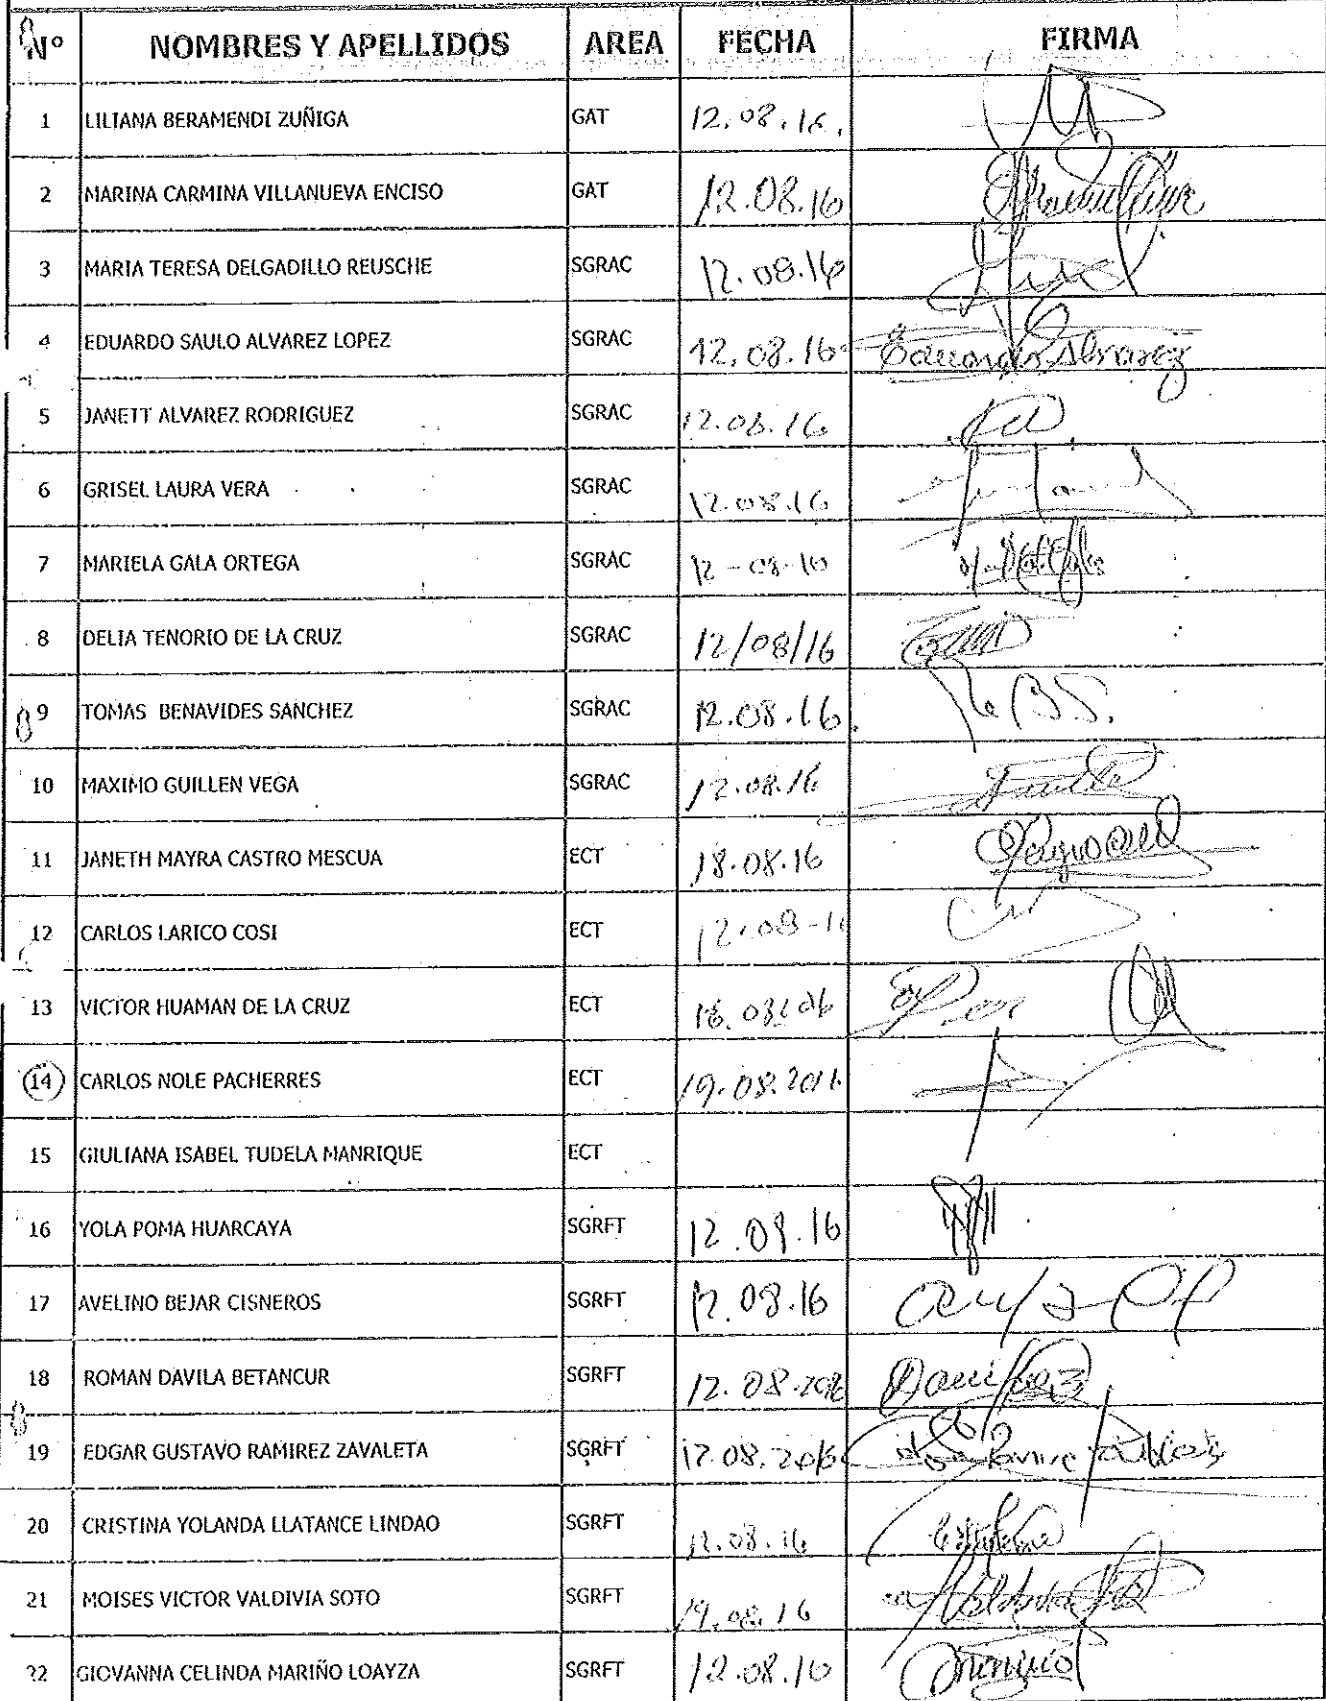 Nº NOMBRES Y APELLIDOS AREA FECHA FIRMA
1 LILIANA BERAMENDI ZUÑIGA GAT 12.08.16.
2 MARINA CARMINA VILLANUEVA ENCISO GAT 12.08.16
3 MARIA TERESA DELGADILLO REUSCHE SGRAC 12.08.16
4 EDUARDO SAULO ALVAREZ LOPEZ SGRAC 12.08.16 Eduardo Alvarez
5 JANETT ALVAREZ RODRIGUEZ SGRAC 12.08.16
6 GRISEL LAURA VERA SGRAC 12.08.16
7 MARIELA GALA ORTEGA SGRAC 12-08-16
8 DELIA TENORIO DE LA CRUZ SGRAC 12/08/16
9 TOMAS BENAVIDES SANCHEZ SGRAC 12.08.16.
10 MAXIMO GUILLEN VEGA SGRAC 12.08.16
11 JANETH MAYRA CASTRO MESCUA ECT 18.08.16
12 CARLOS LARICO COSI ECT 12.08-16
13 VICTOR HUAMAN DE LA CRUZ ECT
14 CARLOS NOLE PACHERRES ECT 19.08.2016
15 GIULIANA ISABEL TUDELA MANRIQUE ECT
16 YOLA POMA HUARCAYA SGRFT 12.08.16
17 AVELINO BEJAR CISNEROS SGRFT 12.08.16
18 ROMAN DAVILA BETANCUR SGRFT 12.08.2016
19 EDGAR GUSTAVO RAMIREZ ZAVALETA SGRFT 12.08.2016
20 CRISTINA YOLANDA LLATANCE LINDAO SGRFT 12.08.16
21 MOISES VICTOR VALDIVIA SOTO SGRFT 19.08.16
22 GIOVANNA CELINDA MARIÑO LOAYZA SGRFT 12.08.16